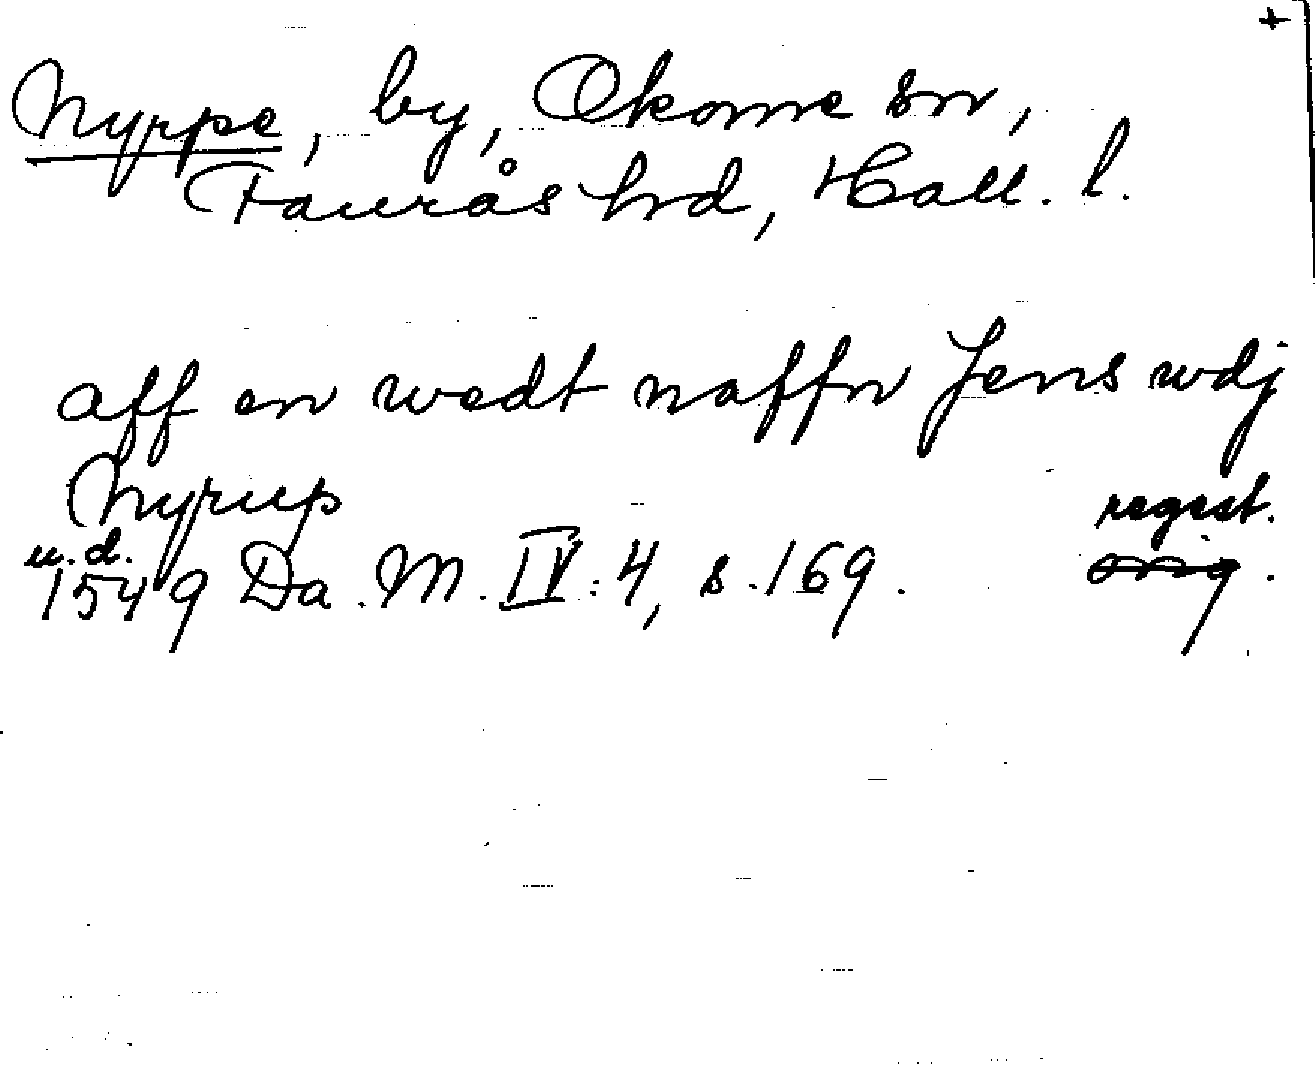 +
Nyrpe, by, Okome sn,
Faurås hrd, Hall. l.
aff en wedt naffn Jens wdj
Nyrup
regest.
u. d.
1549 Da. M. IV: 4, s. 169. orig.